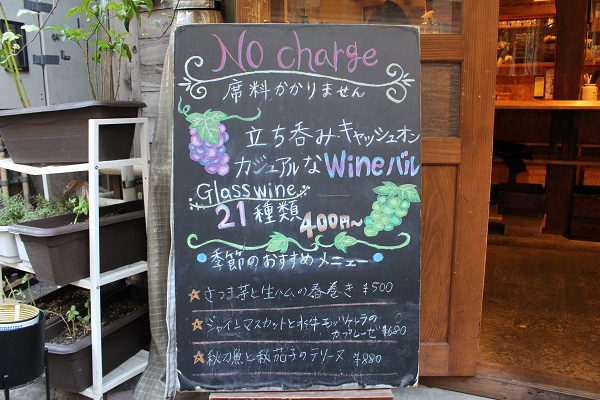 No charge
席料かかりません
立ち呑みキャッシュオン
カジュアルなWineバル
Glass wine
21種類 400円〜
季節のおすすめメニュー
☆さつま芋と生ハムの春巻き ¥500
☆シャインマスカットと水牛モッツァレラの
カプレーゼ ¥680
☆秋刀魚と秋茄子のテリーヌ ¥880